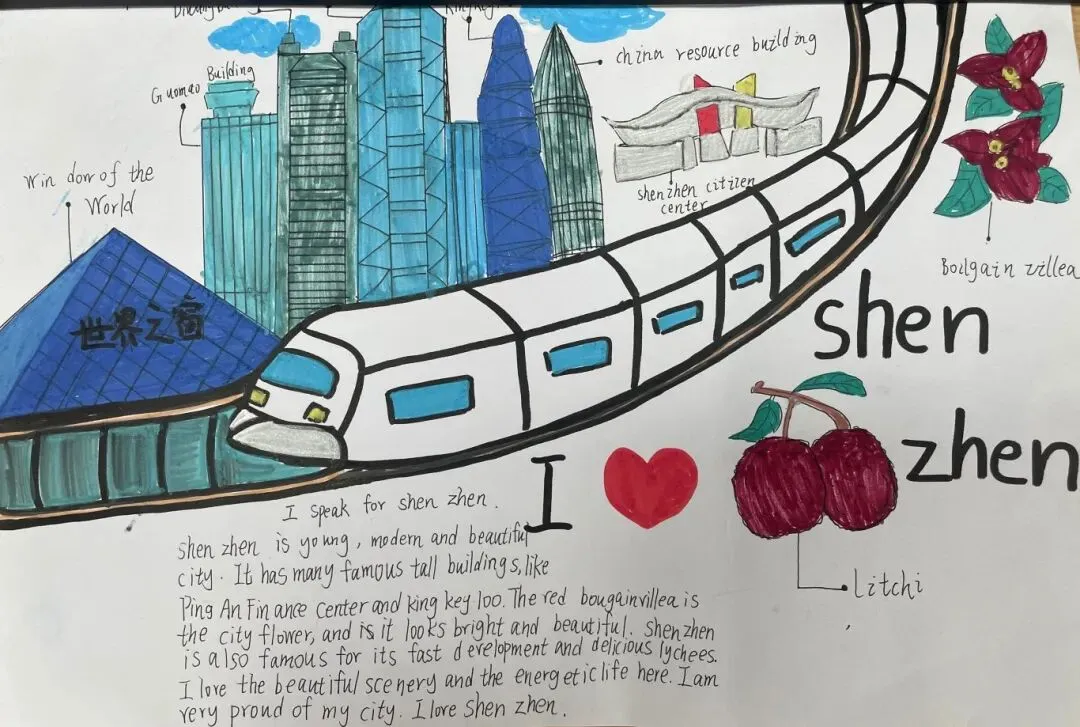 china resource building
Guomao Building
Win dow of the
World
世界之窗
shenzhen citizen
center
Boilgain villea
shen
zhen
I
Litchi
I speak for shen zhen.
shen zhen is young, modern and beautiful
city. It has many famous tall buildings, like
Ping An Fin ance center and king key 100. The red bougainvillea is
the city flower, and is it looks bright and beautiful. Shen zhen
is also famous for its fast development and delicious lychees.
I love the beautiful scenery and the energetic life here. I am
very proud of my city. I love Shen zhen.